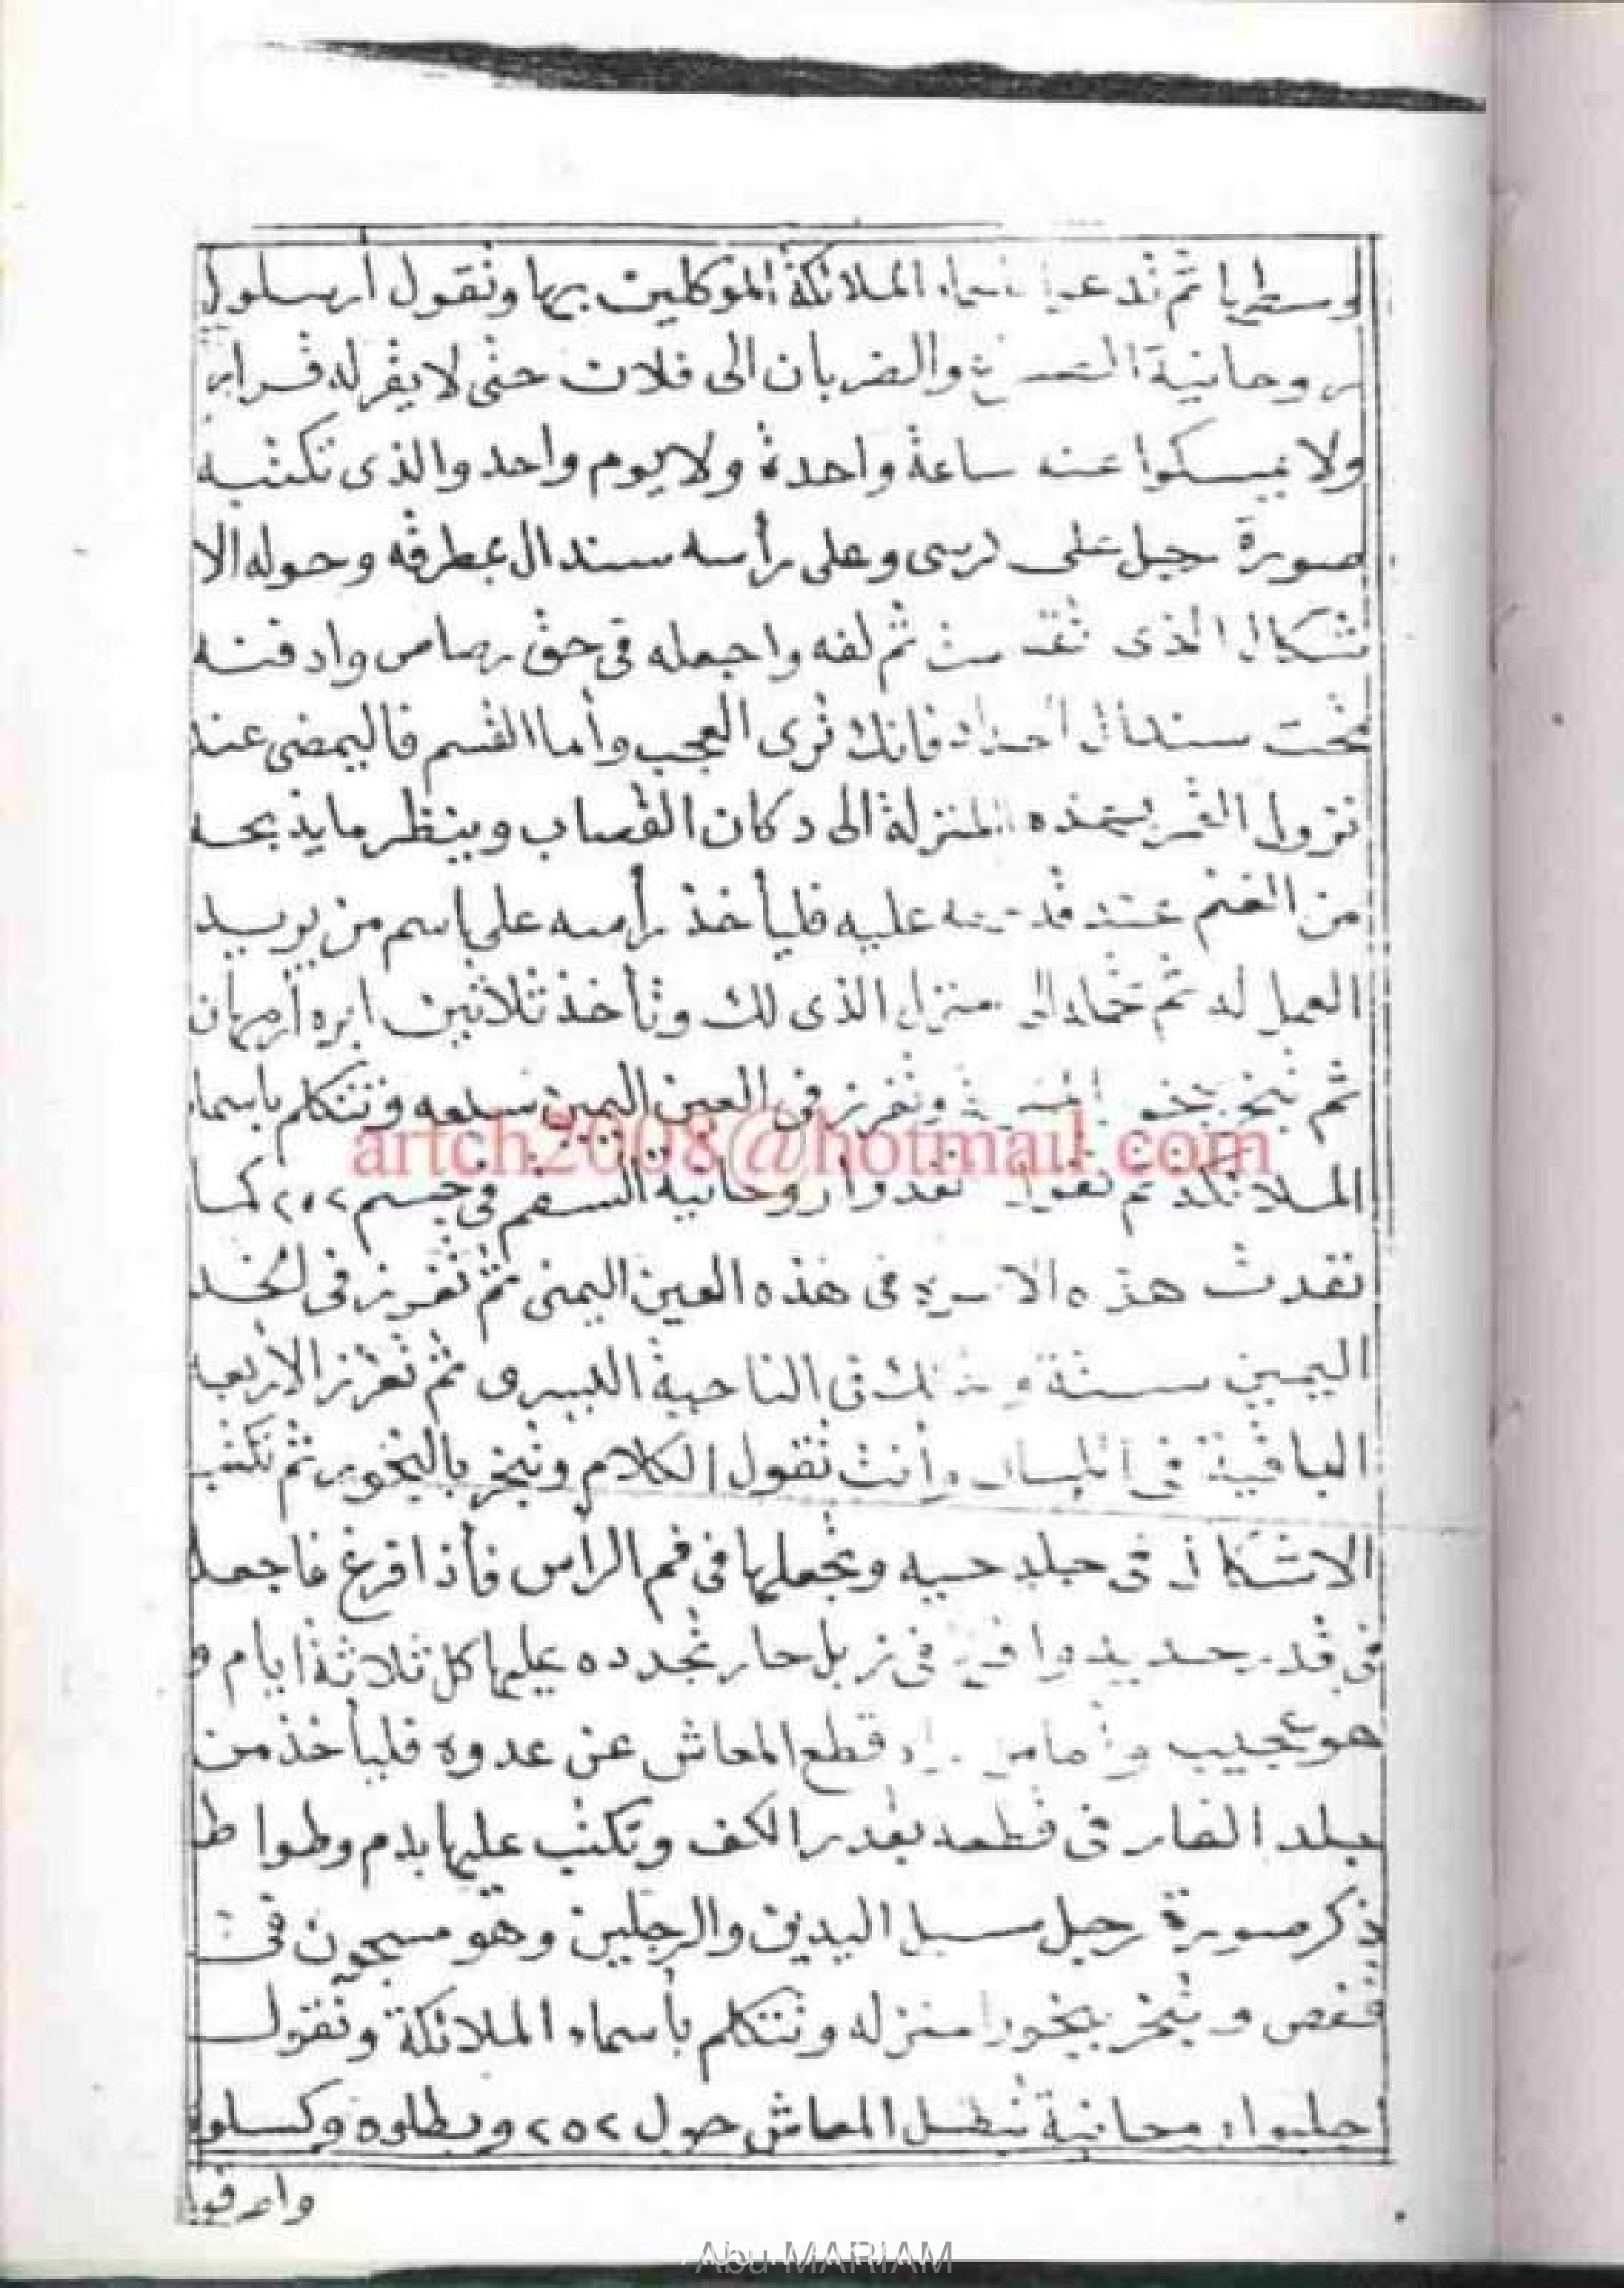 وسطريا ثم تدعي الملائكة الموكلين بها وتقول أرسلوا
روحانية والضربان الى فلان حتى لا يقر له قرار
ولا يمسكوا عنه ساعة واحدة ولا يوم واحد والذى تكتبه
صورة على وعلى رأسه سندال بمطرقه وحوله الا
شكال الذى ثم لفه واجعله فى حق رصاص وادفنه
تحت سندال فانك ترى العجب وأما القسم فاليمضى عند
نزول القمر بهذه المنزلة الى دكان القصاب وينظر ما يذبحه
من الغنم عند عليه فليأخذ رأسه على اسم من يريد
العمل له ثم تحمله الى منزل الذى لك وتأخذ ثلاثين ابره
ثم تبخر وتغرز فى العين اليمين سبعه وتتكلم باسماء
الملائكة ثم تقول نفدوا روحانية السقم فى جسم ٢٥٢ كما
نفدت هذه الابره فى هذه العين اليمنى ثم تغرز فى الخد
اليمين ستة فى الناحية اليسرى ثم تغرز الأربعه
الباقية فى اللسان وأنت تقول الكلام وتبخر بالبخور ثم تكتب
الاشكال فى جلد حيه وتجعلها فى فم الرأس فأذا افرغ فاجعله
فى قدر جديد فى زبل حار تجدده عليها كل ثلاثة ايام و
هو عجيب قطع المعاش عن عدوه فليأخذ من
جلد الفار فى قطعه بقدر الكف وتكتب عليها بدم وطواط
ذكر صورة رجل سبل اليدين والرجلين وهو مسجون فى
قفص وتبخر ببخور منزله وتتكلم بأسماء الملائكة وتقول
اجلبوا المعاش حول ٢٥٢ وبطلوه وكسلوه
artch2008@hotmail.com
Abu MARIAM